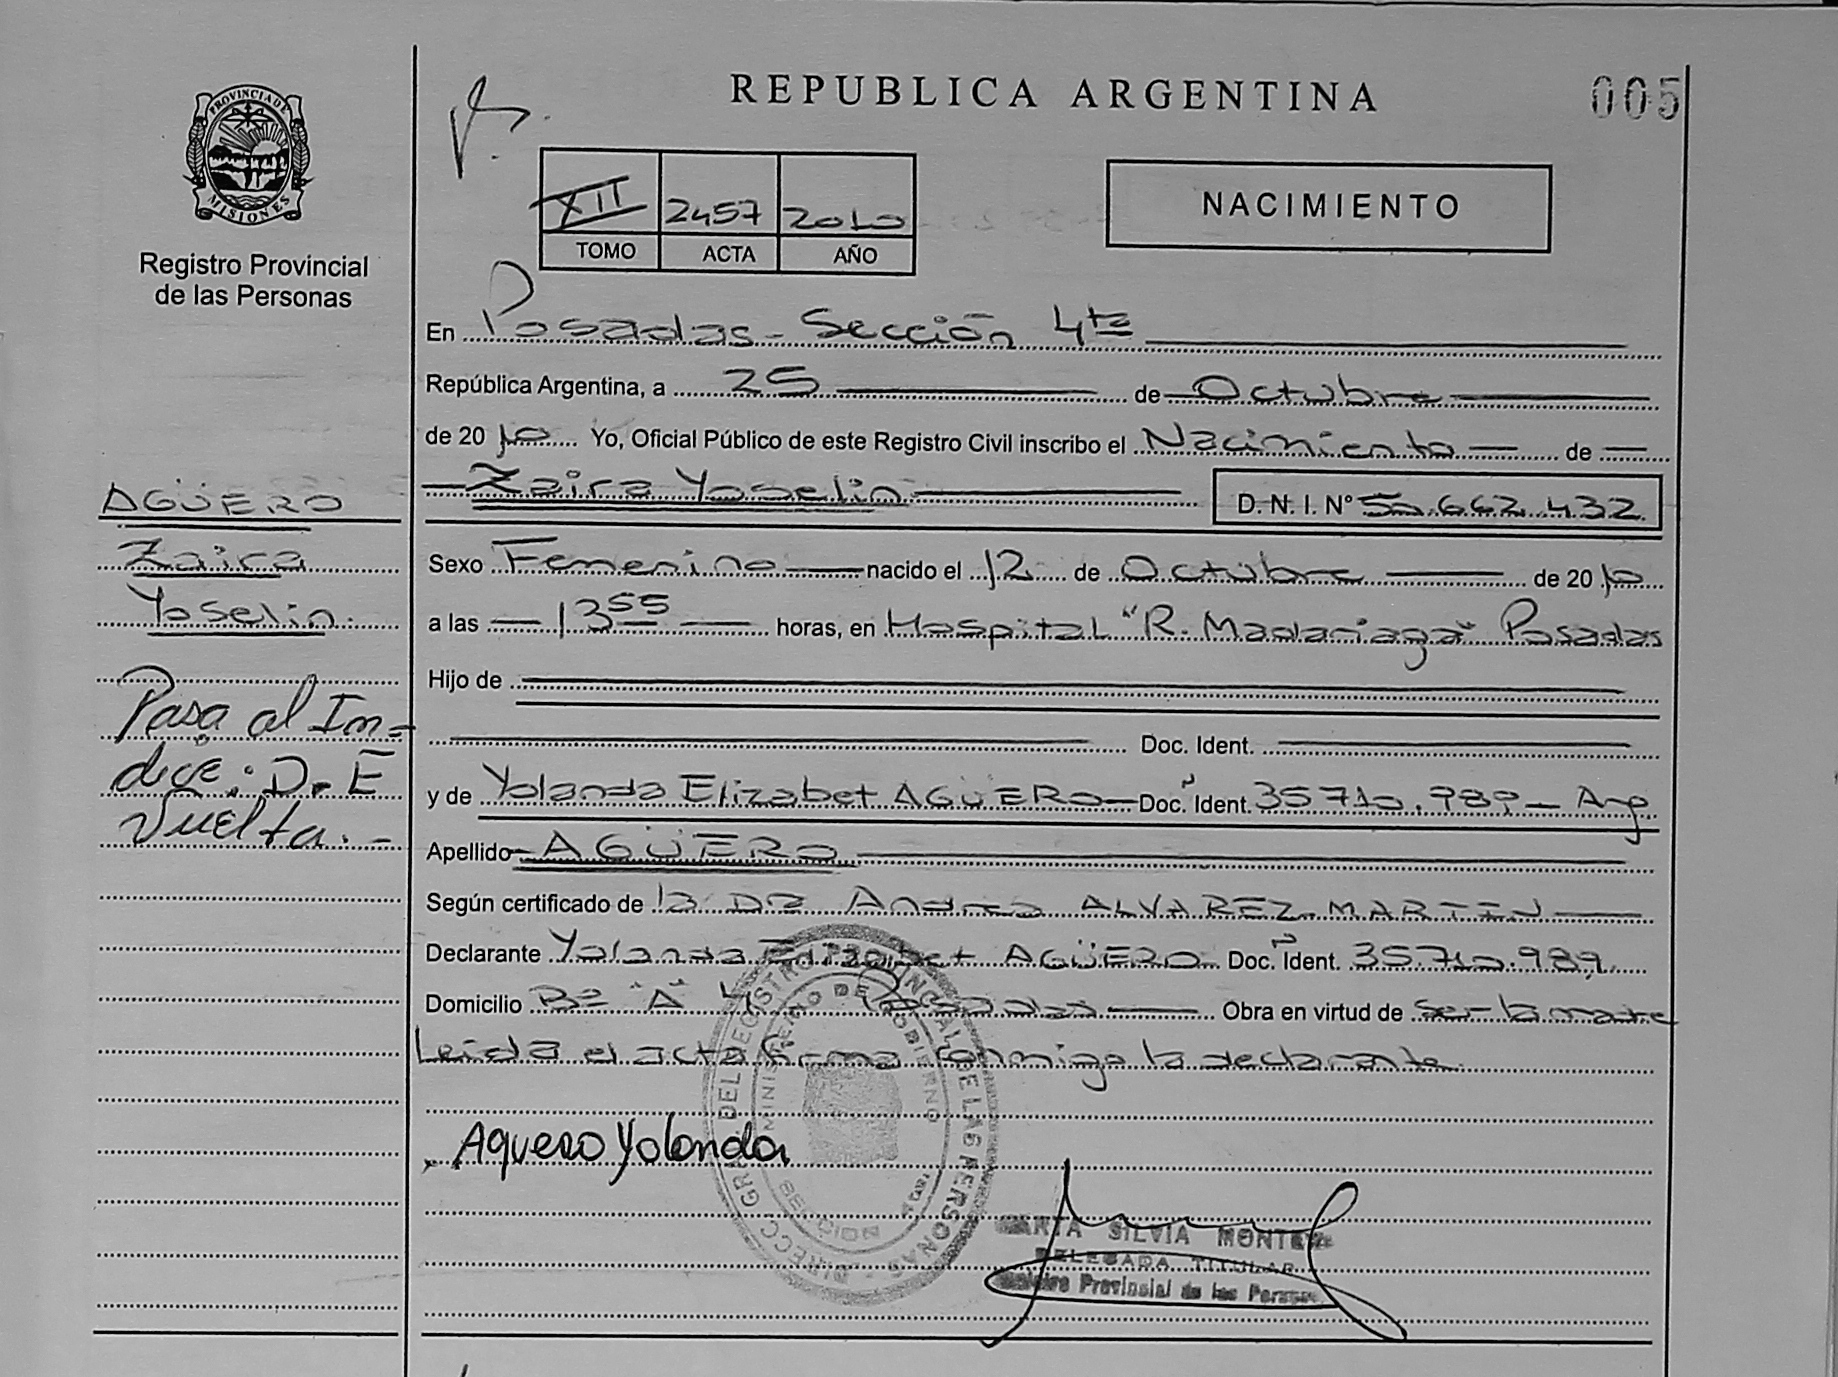 REPUBLICA ARGENTINA
005
PROVINCIA DE MISIONES
Registro Provincial
de las Personas
XII 2457 2010
TOMO ACTA AÑO
NACIMIENTO
En Posadas - Sección 4ta
República Argentina, a 25 de Octubre
de 2010 Yo, Oficial Público de este Registro Civil inscribo el Nacimiento de
Zaira Yoselin D. N. I. Nº 50.662.432
AGÜERO
Zaira
Yoselin.
Sexo Femenino nacido el 12 de Octubre de 2010
a las 13 55 horas, en Hospital "R. Madariaga" Posadas
Hijo de
Doc. Ident.
Pasa al In=
dice: D. E
Vuelta. -
y de Yolanda Elizabet AGÜERO Doc. Ident. 35710.989 - Arg.
Apellido AGÜERO
Según certificado de la Dra Andrea ALVAREZ MARTIN
Declarante Yolanda Elizabet AGÜERO Doc. Ident. 35.710.989
Domicilio Bº "A" 4 Posadas Obra en virtud de ser la madre
Leida el acta firma conmigo la declarante
Aguero Yolanda
DIRECC. GRAL. DEL REGISTRO PROVINCIAL DE LAS PERSONAS
MINISTERIO DE GOBIERNO
SILVIA
DELEGADA TITULAR
Provincial de las